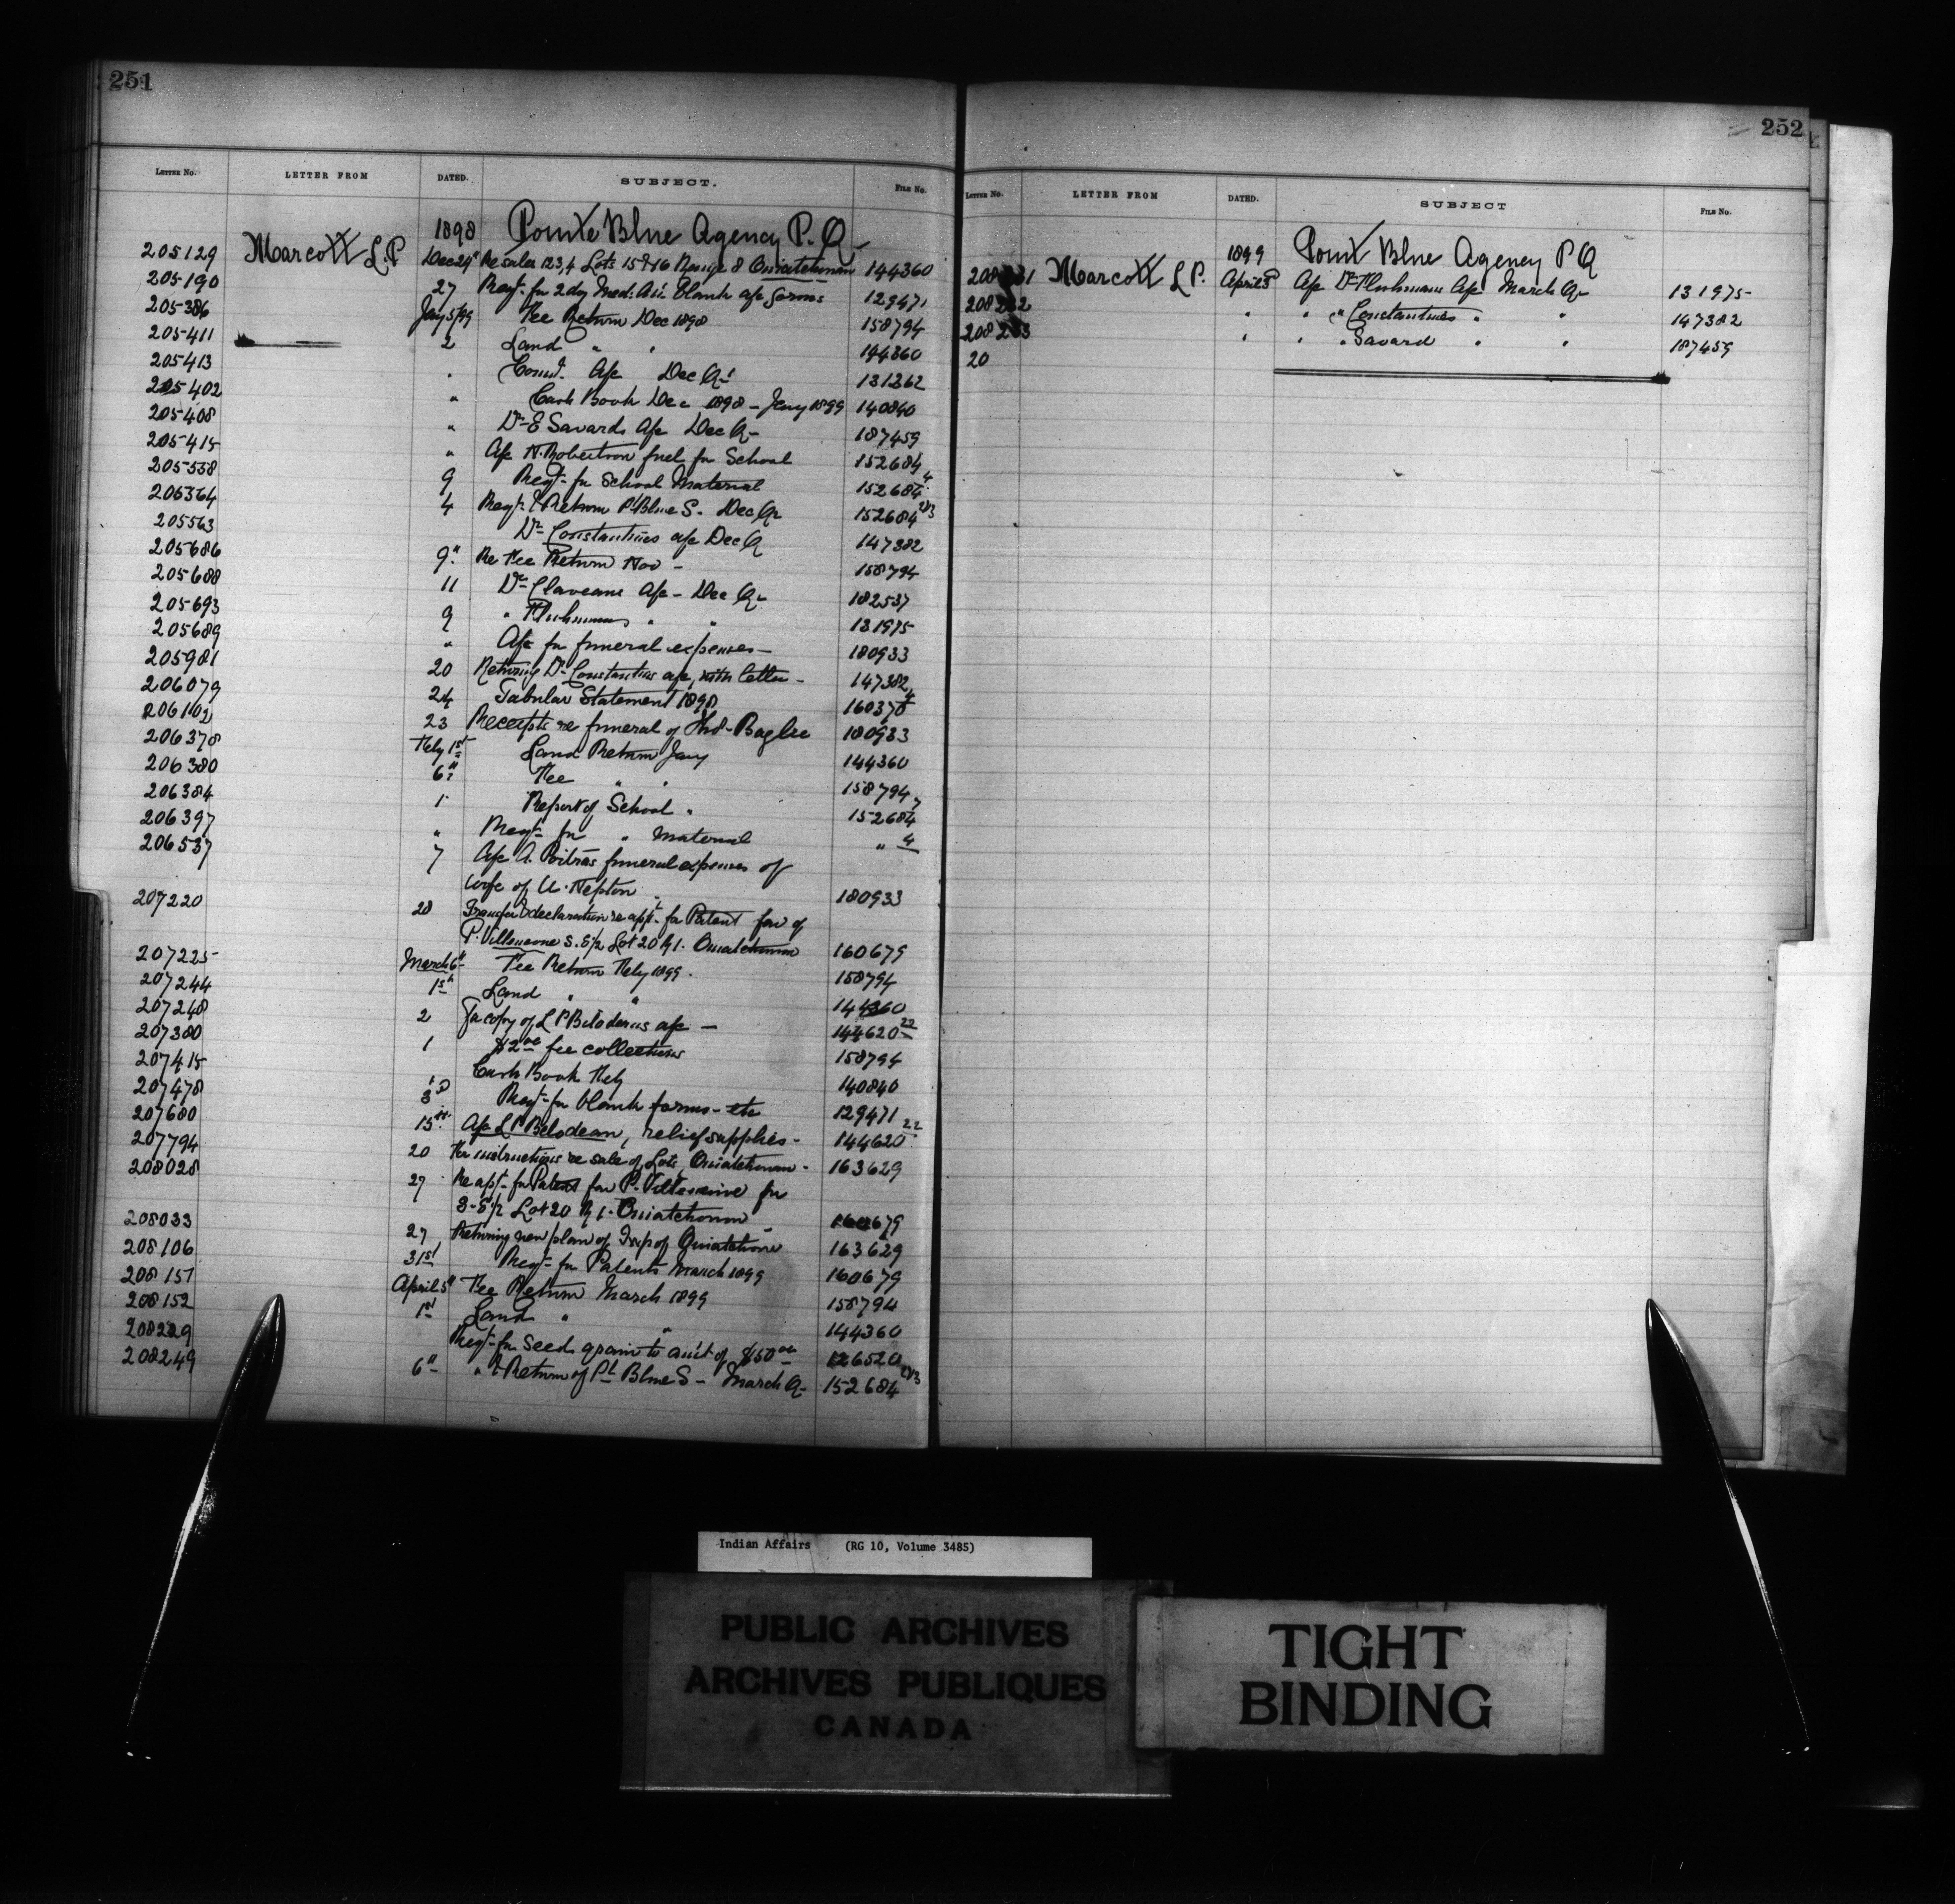 251
LETTER NO. LETTER FROM DATED. SUBJECT. FILE NO.
1898 Pointe Blue Agency P.Q.
205129 Marcott L.P. Dec 24" Re sales 1,2,3,4 Lots 15 & 16 Range 8 Ouiatchouan 144360
205190 27 Reqt. for 2 dy Med. blank a/c forms 129471
205386 Jany 5/99 Fee Return Dec 1898 158794
205411 2 Land " " 144360
205413 " Comd. a/c Dec Qr 131262
205402 " Cash Book Dec 1898 - Jany 1899 140840
205408 " Dr E Savards a/c Dec Q- 187459
205415 " A/c N. Robertson fuel for School 152684
205558 9 Reqt. for School Material 152684 4
206364 4 Reqt. & Return Pt Blue S. Dec Qr 152684 2&3
205563 Dr Constantines a/c Dec Q 147382
205686 9" Re Fee Return Nov - 158794
205688 11 Dr Claveaus a/c - Dec Qr 182537
205693 9 " " " 131975
205689 " A/c for funeral expenses - 180933
205981 20 Returning Dr Constantins a/c, with letter - 147382
206079 24 Tabular Statement 1898 160378
206102 23 Receipts re funeral of Thos. 180933
206378 Feby 1st Land Return Jany 144360
206380 6" Fee " " 158794
206384 1 Report of School " 152684 7
206397 " Reqt. for " Material " 4
206537 7 A/c A. Poitras funeral expenses of
wife of U. Nepton 180933
207220 28 Transfer & declaration re appt. for Patent fav of
P. Villeneuve S. E½ Lot 20 R 1. Ouiatchouan 160679
207225 March 6" Fee Return Feby 1899. 158794
207244 1st Land " " 144360
207248 2 For copy of L P Bilodeaus a/c - 144620 22
207380 1 $2.00 fee collections 158794
207415 Cash Book Feby 140840
207478 3d Reqt. for blank forms - etc 129471
207680 15th A/c L P Bilodeau, relief supplies - 144620 22
207794 20 For instructions re sale of Lots, Ouiatchouan - 163629
208028 27 Re apt. for Patent fav P. Villeneuve for
S. E½ Lot 20 R 1. Ouiatchouan 160679
208033 27 Returning new plan of Twp of Ouiatchouan 163629
208106 31st Reqt. for Patents March 1899 160679
208151 April 5" Fee Return March 1899 158794
208152 1st Land " " 144360
208229 Reqt. for Seed grain to amt of $50.00 126520
208249 6" " & Return of Pt Blue S - March Q- 152684 2&3
252
LETTER NO. LETTER FROM DATED. SUBJECT FILE NO.
1899 Point Blue Agency P Q
208231 Marcott L P. April 8 A/c Dr a/c March Q- 131975
208232 " " " Constantines " " 147382
208233 " " " Savard " " 187459
20
Indian Affairs (RG 10, Volume 3485)
PUBLIC ARCHIVES
ARCHIVES PUBLIQUES
CANADA
TIGHT
BINDING